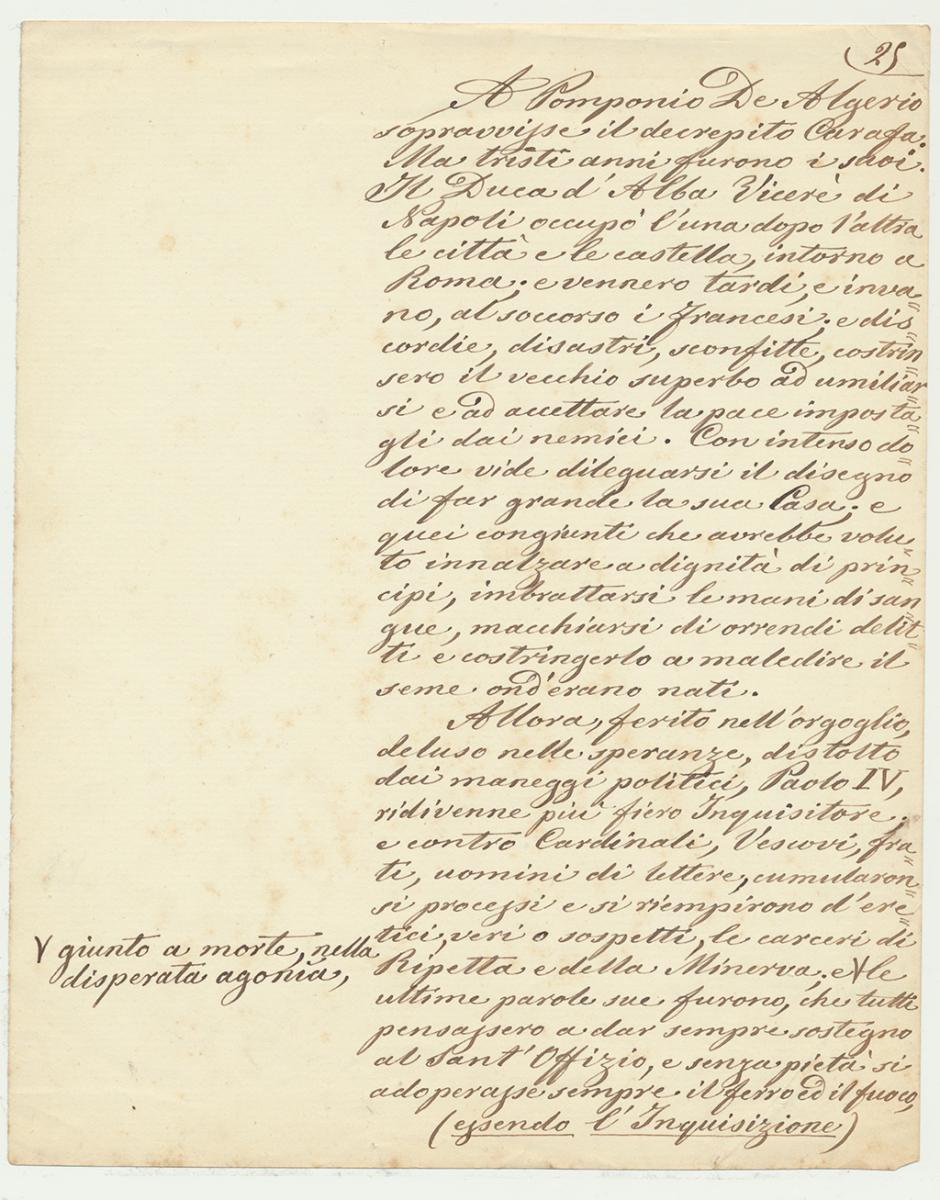 25
A Pomponio De Algerio
sopravvisse il decrepito Carafa.
Ma tristi anni furono i suoi.
Il Duca d'Alba Vicerè di
Napoli occupò l'una dopo l'altra
le città e le castella, intorno a
Roma; e vennero tardi, e inva
no, al soccorso i francesi; e dis
cordie, disastri, sconfitte, costrin
sero il vecchio superbo ad umiliar
si e ad accettare la pace imposta
gli dai nemici. Con intenso do
lore vide dileguarsi il disegno
di far grande la sua Casa; e
quei congiunti che avrebbe volu
to innalzare a dignità di prin
cipi, imbrattarsi le mani di san
gue, macchiarsi di orrendi delit
ti e costringerlo a maledire il
seme ond'erano nati.
Allora, ferito nell'orgoglio,
deluso nelle speranze, distolto
dai maneggi politici, Paolo IV,
ridivenne più fiero Inquisitore;
e contro Cardinali, Vescovi, fra
ti, uomini di lettere, cumularon
si processi e si riempirono d'ere
tici, veri o sospetti, le carceri di
Ripetta e della Minerva; e V le
V giunto a morte, nella
disperata agonia,
ultime parole sue furono, che tutti
pensassero a dar sempre sostegno
al Sant'Offizio, e senza pietà si
adoperasse sempre il ferro ed il fuoco,
(essendo l'Inquisizione)